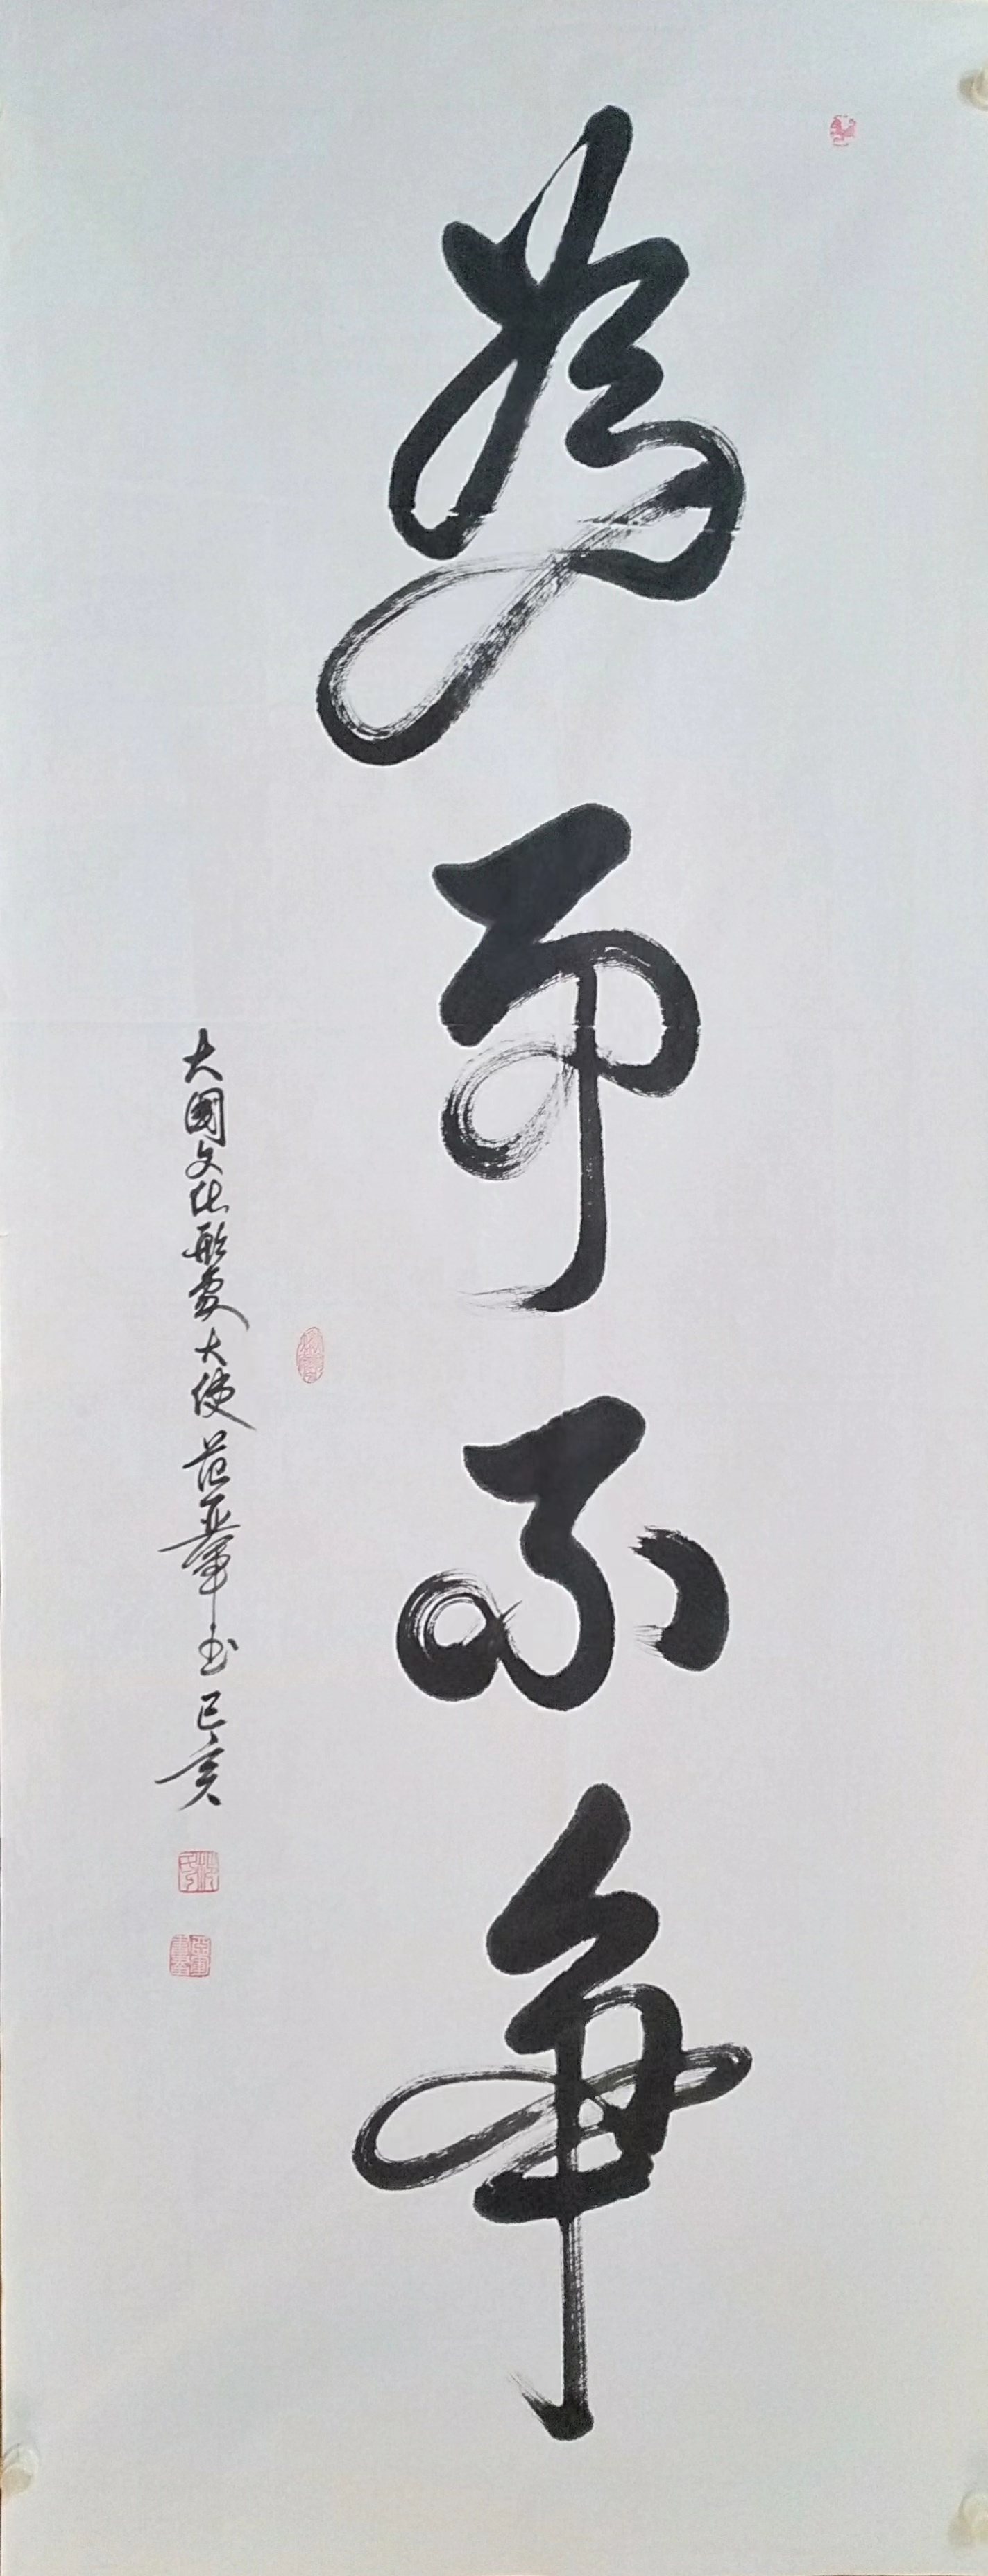 為而不爭
大國文化形象大使范亚軍书己亥